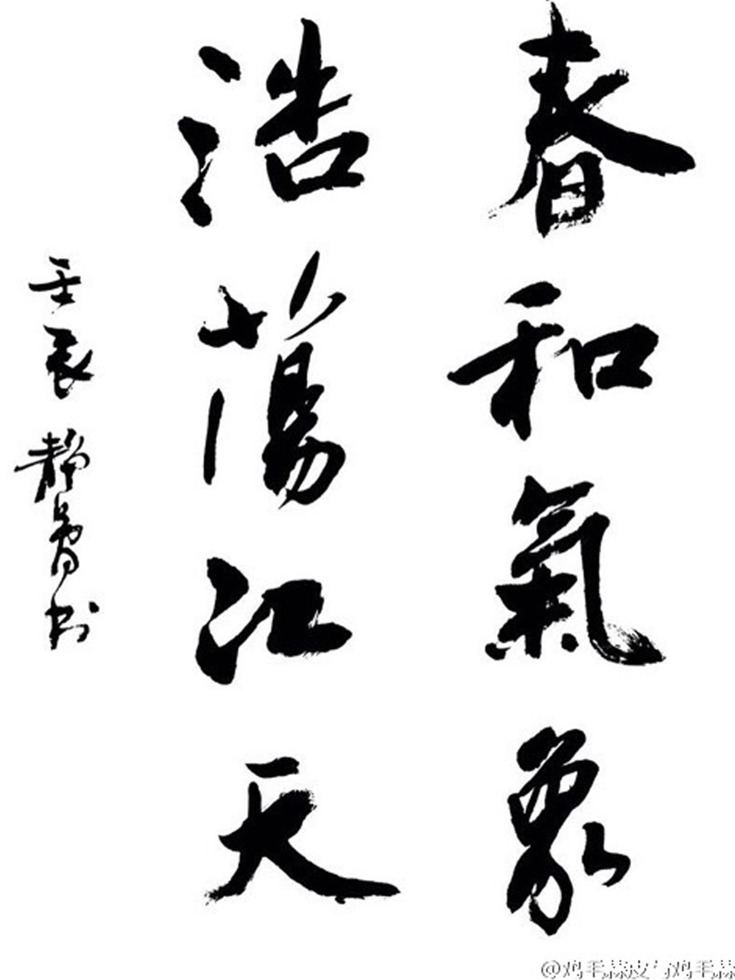 春和氣象
浩蕩江天
壬辰 静 书
@鸡毛蒜皮与鸡毛蒜